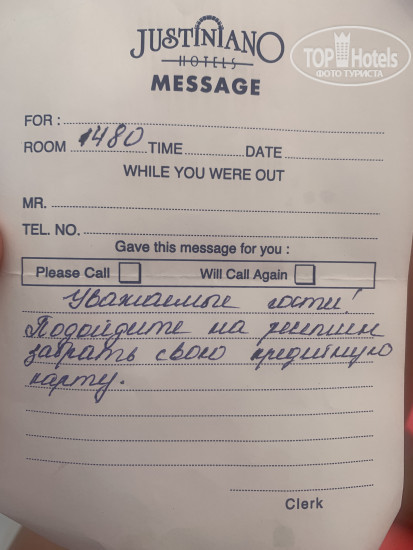 JUSTINIANO
HOTELS
MESSAGE
TopHotels
ФОТО ТУРИСТА
FOR :
ROOM 1480 TIME DATE
WHILE YOU WERE OUT
MR.
TEL. NO.
Gave this message for you :
Please Call Will Call Again
Уважаемые гости!
Подойдите на ресепшн
забрать свою кредитную
карту.
Clerk